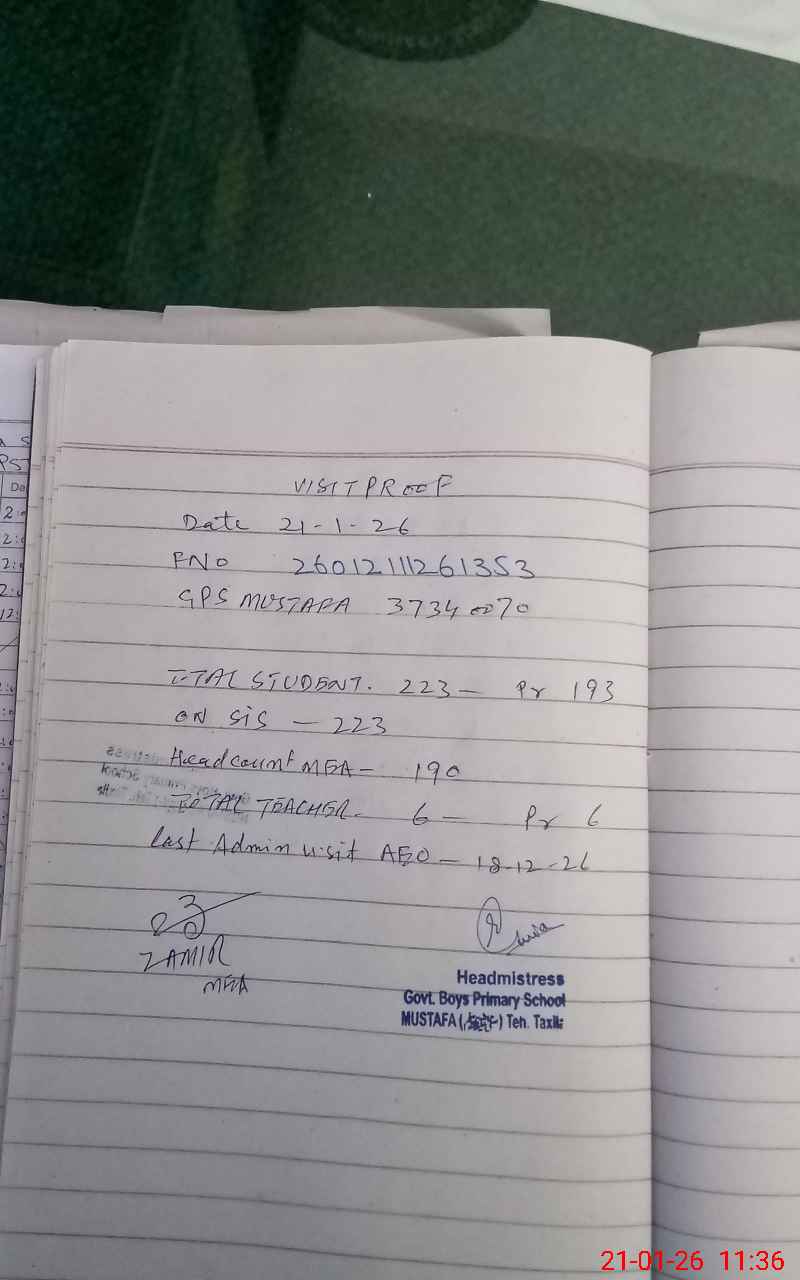 VISIT PROOF
Date 21-1-26
FNO 26012111261353
GPS MUSTAFA 37340070
TOTAL STUDENT. 223 - Pr 193
ON SIS - 223
Headcount MEA - 190
TOTAL TEACHER. 6 - Pr 6
last Admin visit AEO - 18-12-26
ZAMIR
MEA
Headmistress
Govt. Boys Primary School
MUSTAFA ( ) Teh. Taxila
21-01-26 11:36